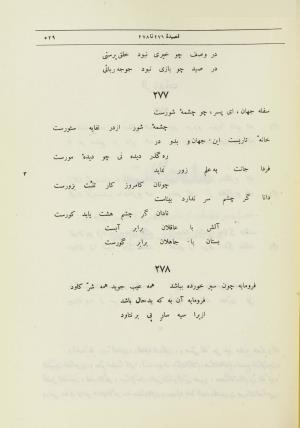 قصیدهٔ ۲۷۱ تا ۲۷۸
۵۲۹
در وصف چو خیری نبود خلق پرستی
در صید چو بازی نبود جوجه ربائی
۲۷۷
سفله جهان، ای پسر، چو چشمهٔ شورست
چشمهٔ شور از در نفایه ستورست
خانهٔ تاریست این، جهان و بدو در
ره گذر دیده نی چو دیدهٔ مورست
فردا جانت به علم زور نماید
۳
چونان کامروز کار تنت بزورست
دانا گر چشم سر ندارد بیناست
نادان گر چشم هشت یابد کورست
آتش با عاقلان برابر آبست
بستان با جاهلان برابر گورست
۲۷۸
فرومایه چون سیر خورده بباشد همه عیب جوید همه شرّ کاود
فرومایه آن به که بدحال باشد
ازیرا سیه سار پی برنتاود